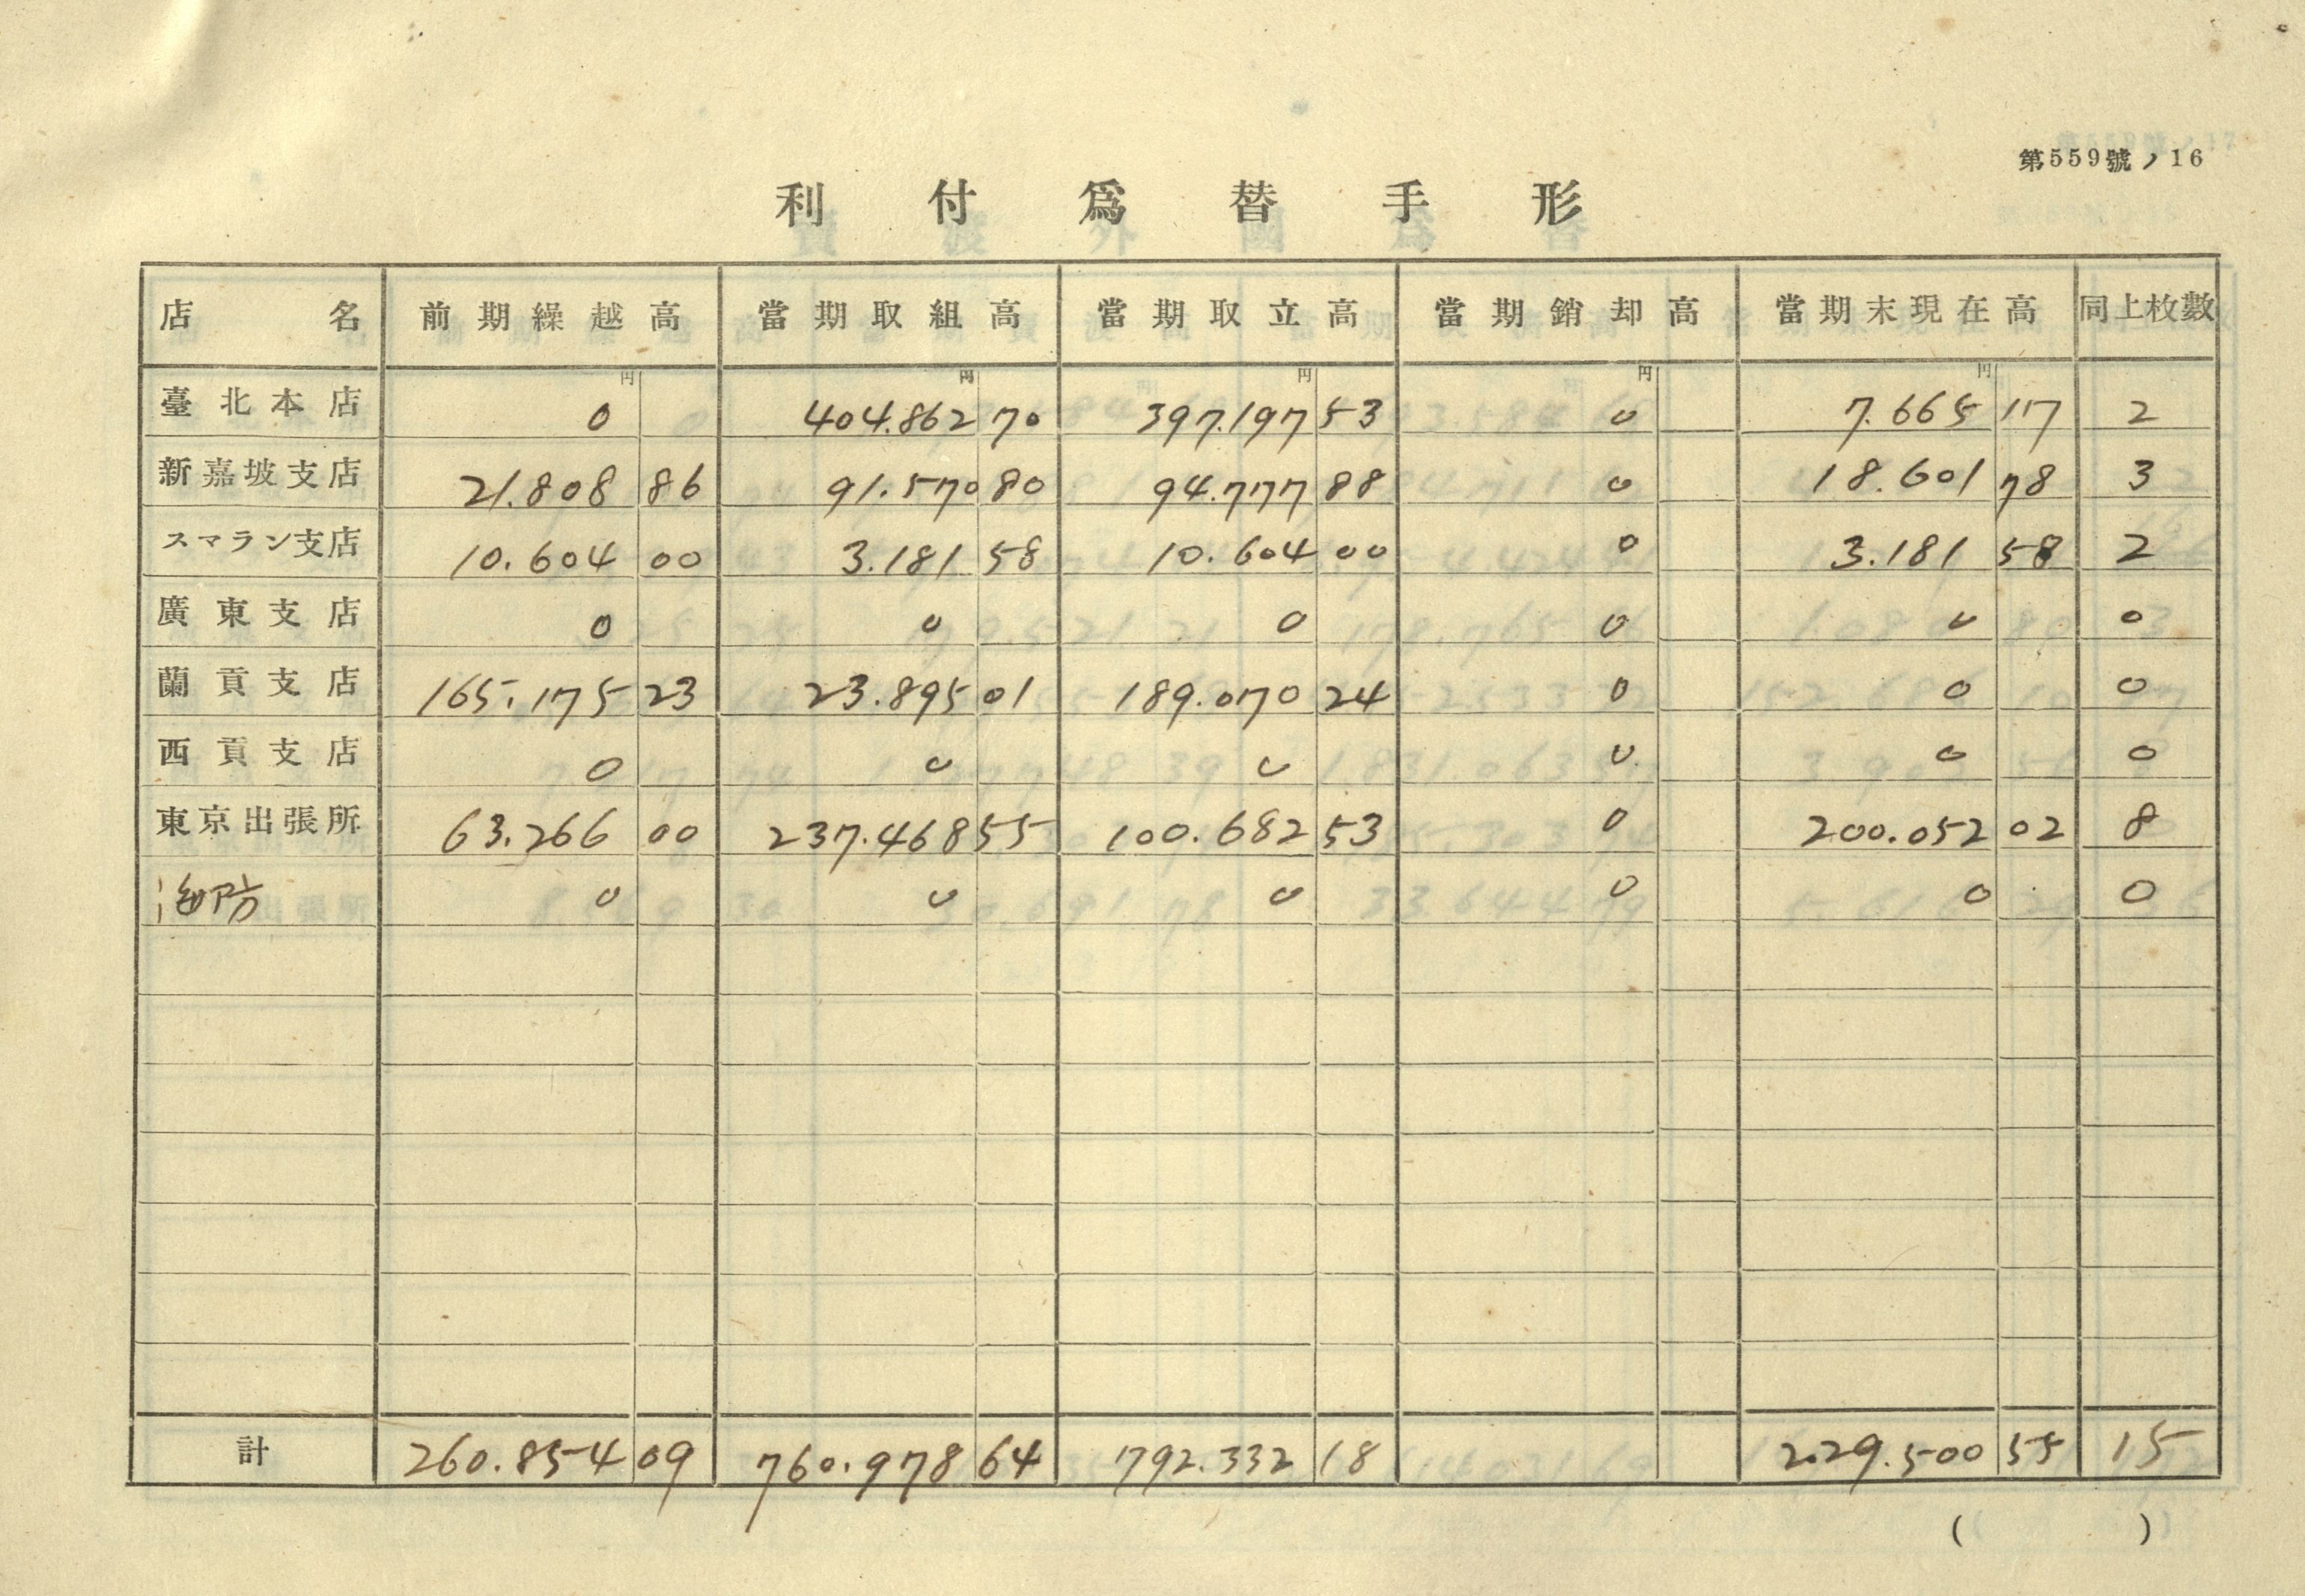 第559號ノ16
利付爲替手形
店名 前期繰越高 當期取組高 當期取立高 當期銷却高 當期末現在高 同上枚數
円 円 円 円 円
臺北本店 0 404.862 70 397.197 53 0 7.665 17 2
新嘉坡支店 21.808 86 91.570 80 94.777 88 0 18.601 78 3
スマラン支店 10.604 00 3.181 58 10.604 00 0 3.181 58 2
廣東支店 0 0 0 0 0 0
蘭貢支店 165.175 23 23.895 01 189.070 24 0 0 0
西貢支店 0 0 0 0 0 0
東京出張所 63.266 00 237.468 55 100.682 53 0 200.052 02 8
海防 0 0 0 0 0 0
計 260.854 09 760.978 64 792.332 18 229.500 55 15
( )